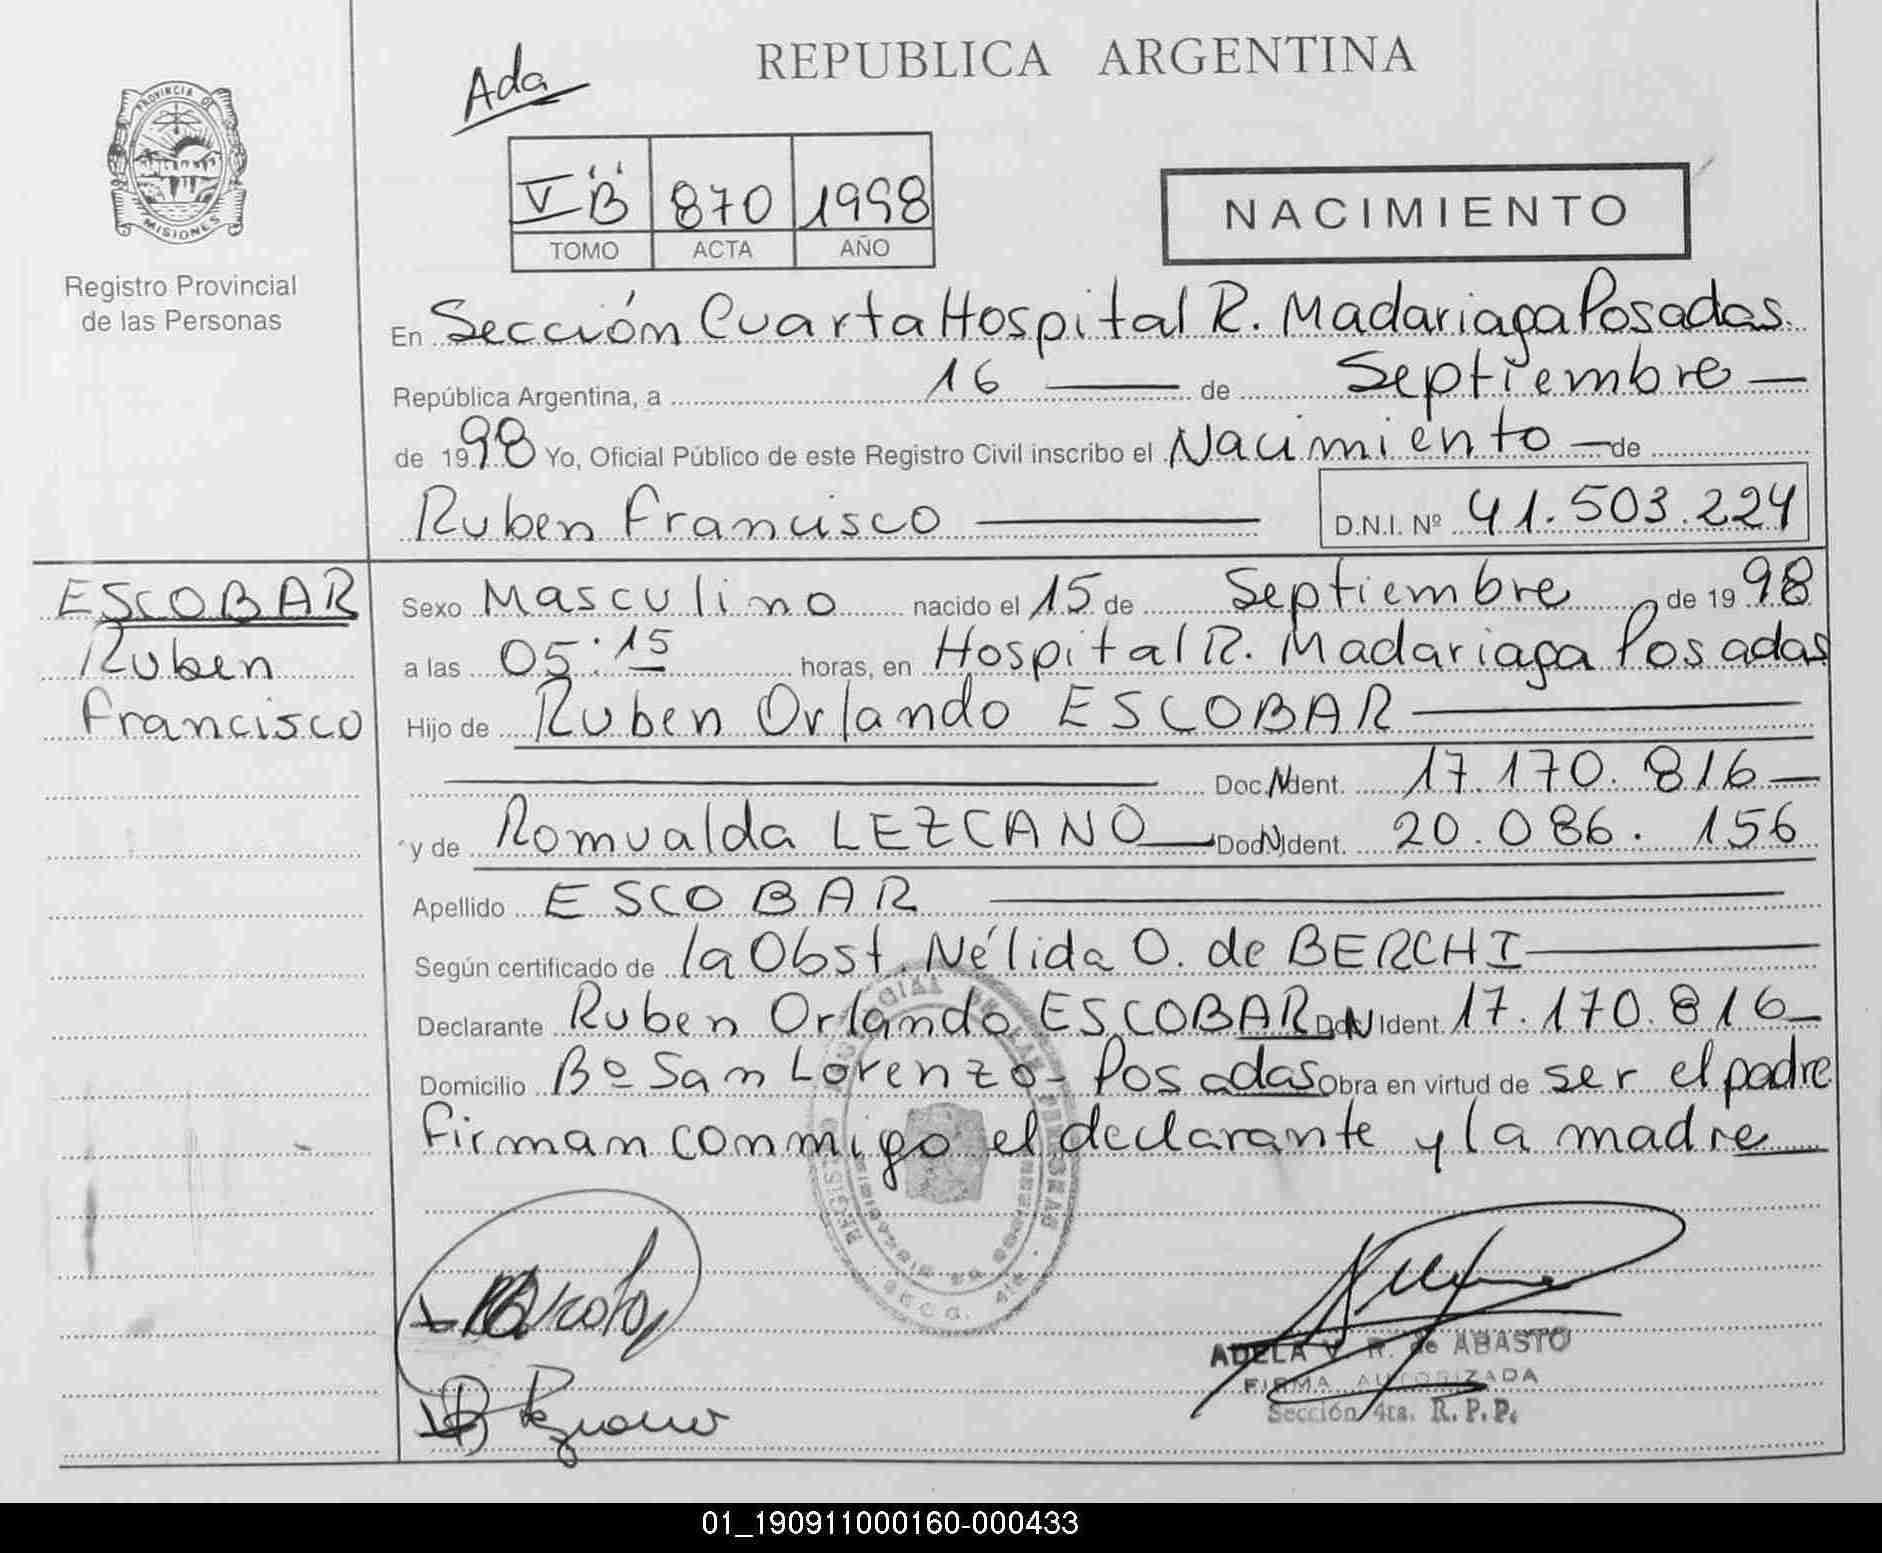 REPUBLICA ARGENTINA
Ada
PROVINCIA DE
MISIONES
Registro Provincial
de las Personas
V "B" 870 1998
TOMO ACTA AÑO
NACIMIENTO
En Sección Cuarta Hospital R. Madariaga Posadas
República Argentina, a 16 de Septiembre
de 1998 Yo, Oficial Público de este Registro Civil inscribo el Nacimiento de
Ruben Francisco D.N.I. Nº 41.503.224
ESCOBAR
Ruben
Francisco
Sexo Masculino nacido el 15 de Septiembre de 1998
a las 05:15 horas, en Hospital R. Madariaga Posadas
Hijo de Ruben Orlando ESCOBAR
Doc. N Ident. 17.170.816
y de Romualda LEZCANO Doc N Ident. 20.086.156
Apellido ESCOBAR
Según certificado de la Obst. Nélida O. de BERCHI
Declarante Ruben Orlando ESCOBAR Doc N Ident 17.170.816
Domicilio Bº San Lorenzo - Posadas Obra en virtud de ser el padre
firman conmigo el declarante y la madre
ADELA V. R. de ABASTO
FIRMA AUTORIZADA
Sección 4ta. R.P.P.
01_190911000160-000433